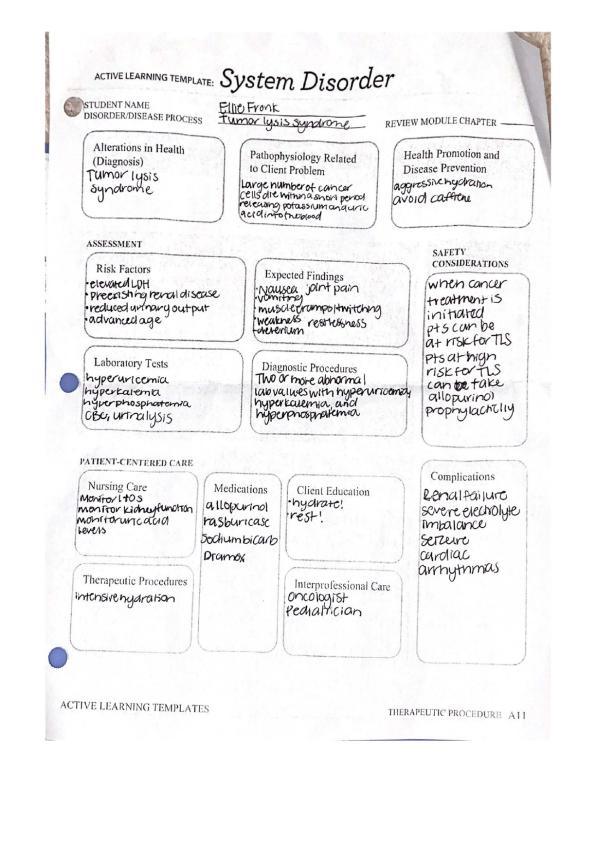 ACTIVE LEARNING TEMPLATE: System Disorder
STUDENT NAME Ellie Fronk
DISORDER/DISEASE PROCESS Tumor lysis syndrome
REVIEW MODULE CHAPTER
Alterations in Health
(Diagnosis)
Tumor lysis
syndrome
Pathophysiology Related
to Client Problem
Large number of cancer
cells die within a short period
releasing potassium and uric
acid into the blood
Health Promotion and
Disease Prevention
aggressive hydration
avoid caffeine
ASSESSMENT
SAFETY
CONSIDERATIONS
Risk Factors
• elevated LDH
• Preexisting renal disease
• reduced urinary output
• advanced age
Expected Findings
• Nausea joint pain
vomiting
• muscle cramps/twitching
• weakness restlessness
when cancer
treatment is
initiated
pts can be
at risk for TLS
Pts at high
risk for TLS
can be take
allopurinol
Laboratory Tests
hyperuricemia
hyperkalemia
hyperphosphatemia
CBC, urinalysis
Diagnostic Procedures
Two or more abnormal
lab values with hyperuricemia,
hyperkalemia, and
hyperphosphatemia
PATIENT-CENTERED CARE
Nursing Care
Monitor I+Os
monitor kidney function
monitor uric acid
levels
Medications
allopurinol
rasburicase
Sodium bicarb
Client Education
• hydrate!
• rest!
Complications
Renal failure
severe electrolyte
imbalance
Seizure
cardiac
Therapeutic Procedures
intensive hydration
Interprofessional Care
Oncologist
Pediatrician
ACTIVE LEARNING TEMPLATES
THERAPEUTIC PROCEDURE A11